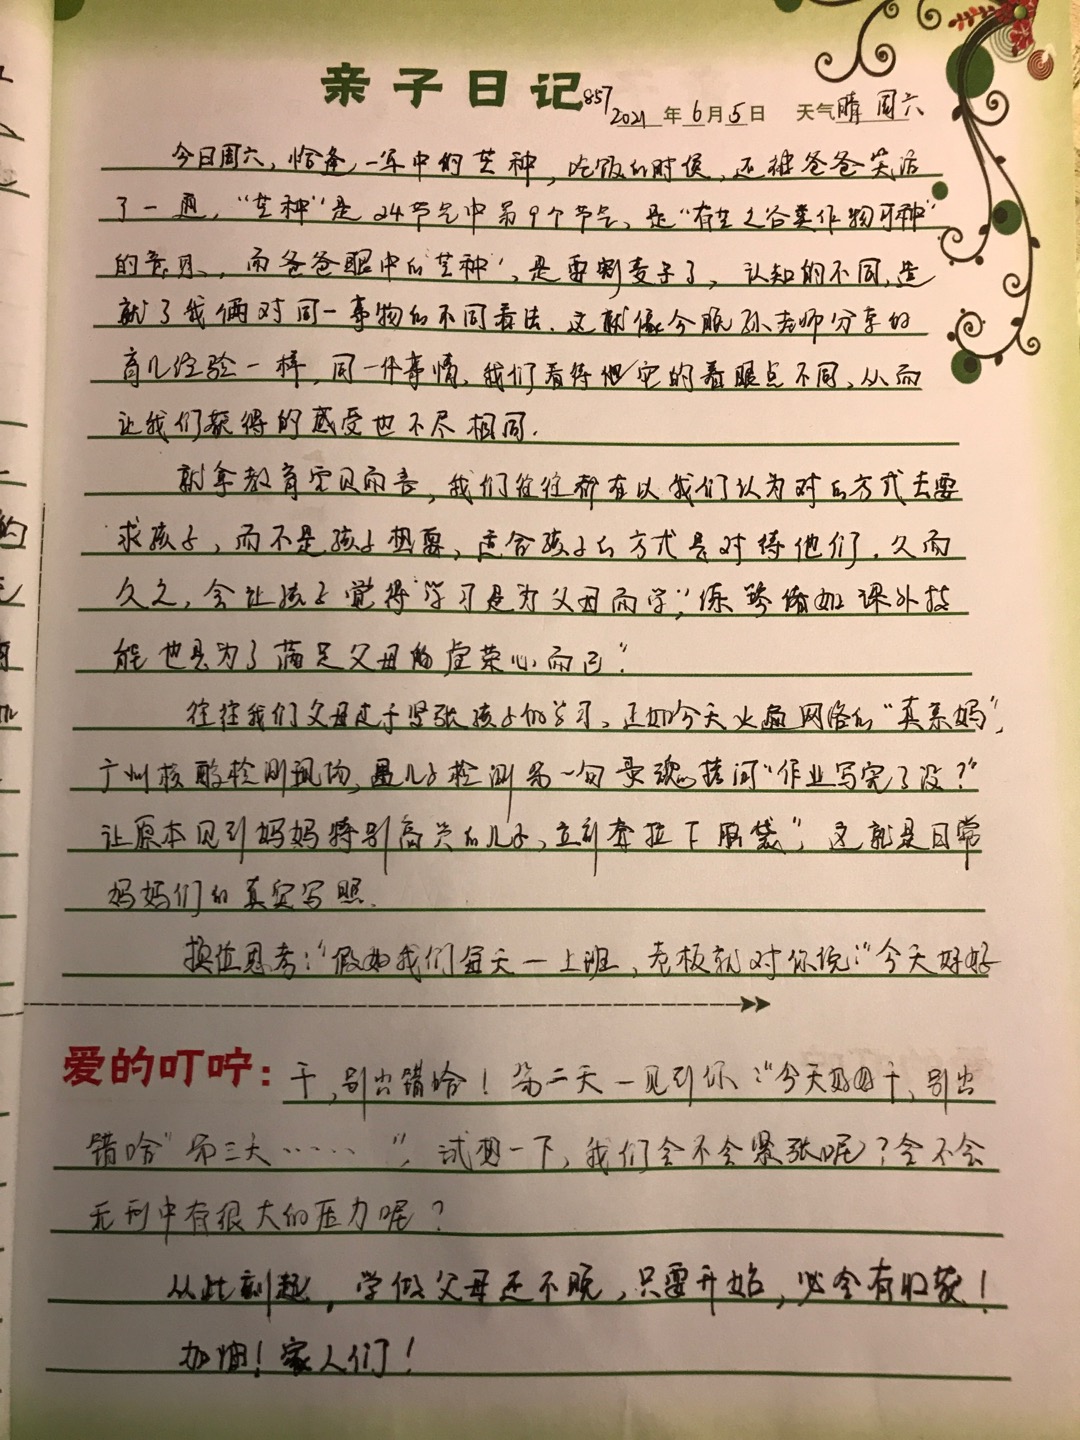 亲子日记857
2021年6月5日 天气晴 周六
今日周六，恰逢一年中的芒种，吃饭的时候，还被爸爸笑话
了一通，“芒种”是24节气中第9个节气、是“有芒之谷类作物可种”
的意思，而爸爸眼中的“芒种”，是要割麦子了，认知的不同，造
就了我俩对同一事物的不同看法。这就像今晚孙老师分享的
育儿经验一样，同一件事情，我们看待它的着眼点不同，从而
让我们获得的感受也不尽相同.
就拿教育宝贝而言，我们往往都在以我们认为对的方式去要
求孩子，而不是孩子想要，适合孩子的方式去对待他们.久而
久之，会让孩子觉得“学习是为父母而学”，练琴诸如课外技
能也是为了满足父母的虚荣心而已”.
往往我们父母过于紧张孩子的学习，正如今天火遍网络的“真亲妈”，
广州核酸检测现场，儿子检测第一句灵魂拷问“作业写完了没？”
让原本见到妈妈特别高兴的儿子，立刻耷拉下脑袋”，这就是日常
妈妈们的真实写照.
换位思考：“假如我们每天一上班，老板就对你说：“今天好好
爱的叮咛：干，别出错哈！第二天一见到你：“今天好好干，别出
错哈”第三天……”，试想一下，我们会不会紧张呢？会不会
无形中有很大的压力呢？
从此刻起，学做父母还不晚，只要开始，必会有收获！
加油！家人们！